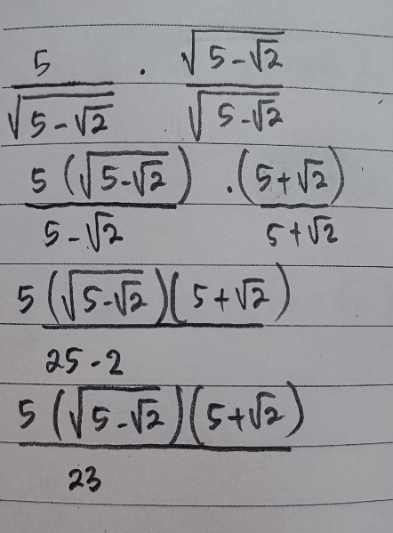 5/√(5-√2) · √(5-√2)/√(5-√2)
5(√(5-√2))/(5-√2) · (5+√2)/(5+√2)
5(√(5-√2))(5+√2)/(25-2)
5(√(5-√2))(5+√2)/23